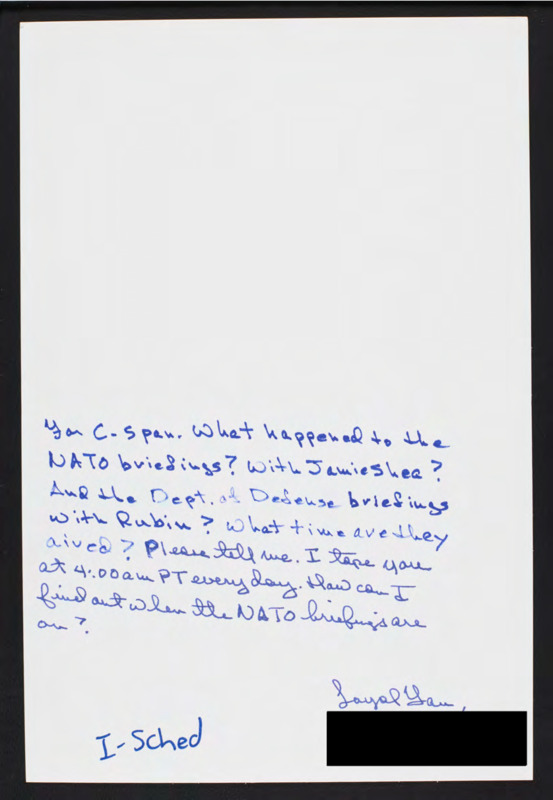 Yo C-Span. What happened to the
NATO briefings? With Jamie Shea?
And the Dept. of Defense briefings
with Rubin? What time are they
aired? Please tell me. I tape you
at 4:00am PT every day. How can I
find out when the NATO briefings are
on?
Loyal Fan,
I-Sched